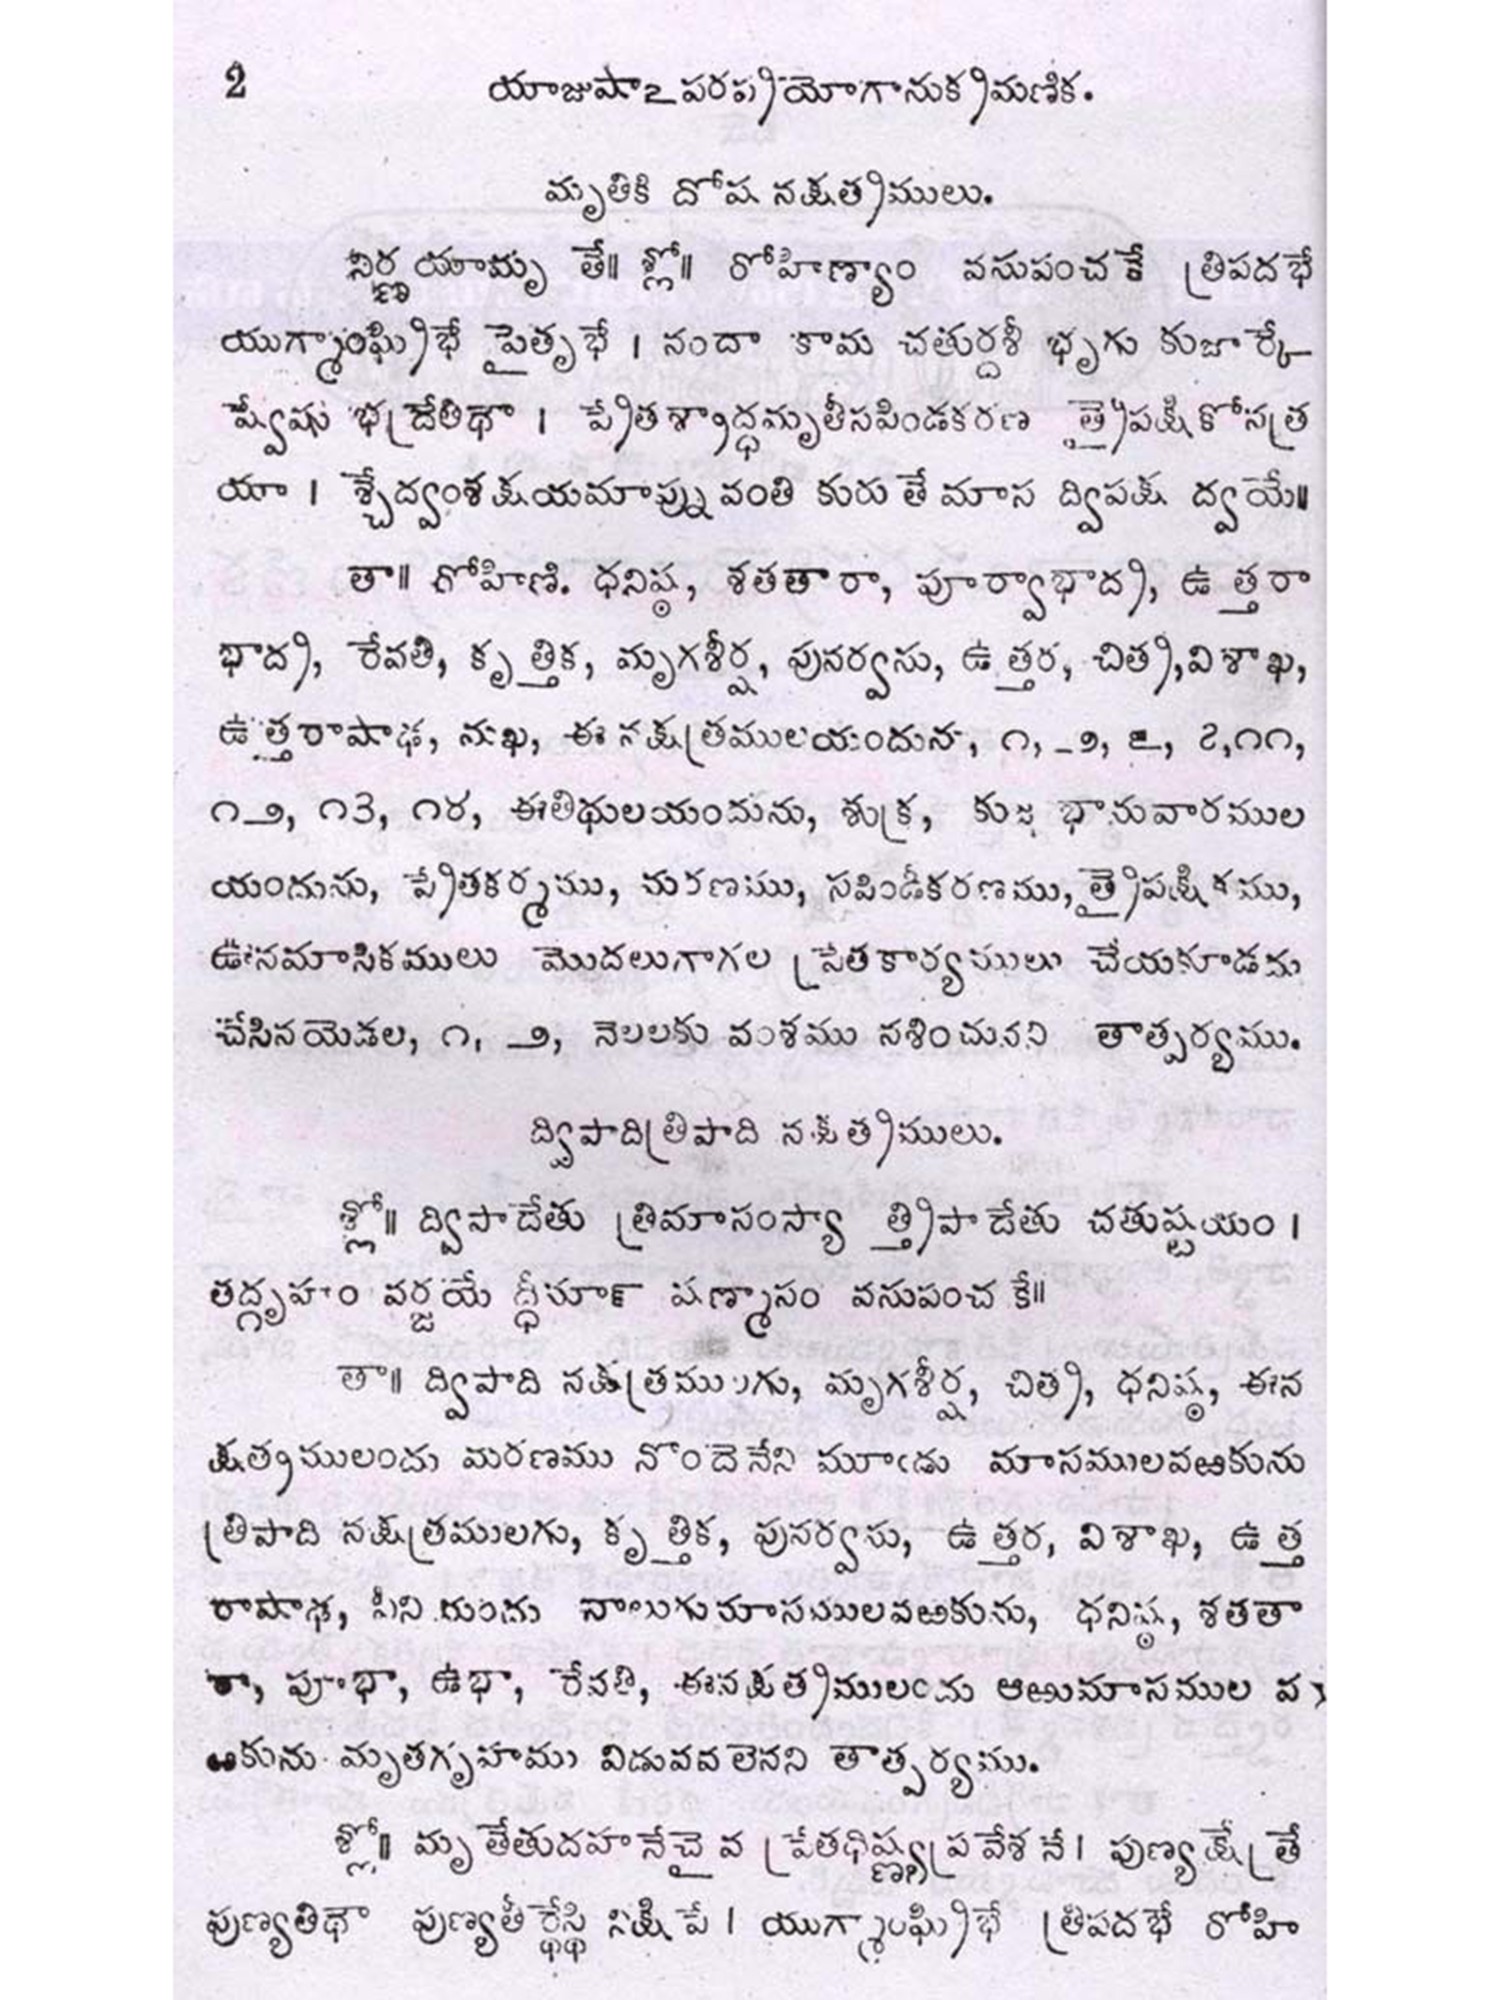 2 యాజుషాఽపరప్రయోగానుక్రమణిక.
మృతికి దోష నక్షత్రములు.
నిర్ణయామృతే॥ శ్లో॥ రోహిణ్యాం వసుపంచకే త్రిపదభే
యుగ్మాంఘ్రిభే పైతృభే । నందా కామ చతుర్దశీ భృగు కుజార్కే
ష్వేషు భద్రేతిథౌ । ప్రేతశ్రాద్ధమృతీసపిండకరణ త్రైపక్షికోనత్ర
యా । శ్చేద్వంశక్షయమాప్నువంతి కురుతే మాస ద్విపక్ష ద్వయే॥
తా॥ రోహిణి. ధనిష్ఠ, శతతారా, పూర్వాభాద్ర, ఉత్తరా
భాద్ర, రేవతి, కృత్తిక, మృగశీర్ష, పునర్వసు, ఉత్తర, చిత్ర, విశాఖ,
ఉత్తరాషాఢ, మఖ, ఈ నక్షత్రములయందును, ౧, ౨, ౬, ౭, ౧౧,
౧౨, ౧౩, ౧౪, ఈతిథులయందును, శుక్ర, కుజ భానువారముల
యందును, ప్రేతకర్మము, మరణము, సపిండీకరణము, త్రైపక్షికము,
ఊనమాసికములు మొదలుగాగల ప్రేతకార్యములు చేయకూడదు
చేసినయెడల, ౧, ౨, నెలలకు వంశము నశించునని తాత్పర్యము.
ద్విపాదిత్రిపాది నక్షత్రములు.
శ్లో॥ ద్విపాదేతు త్రిమాసంస్యా త్త్రిపాదేతు చతుష్టయం ।
తద్గృహం వర్జయే ద్ధీమా౯ షణ్మాసం వసుపంచకే॥
తా॥ ద్విపాది నక్షత్రములగు, మృగశీర్ష, చిత్ర, ధనిష్ఠ, ఈన
క్షత్రములందు మరణము నొందెనేని మూఁడు మాసములవఱకును
త్రిపాది నక్షత్రములగు, కృత్తిక, పునర్వసు, ఉత్తర, విశాఖ, ఉత్త
రాషాఢ, వీనియందు నాలుగుమాసములవఱకును, ధనిష్ఠ, శతతా
రా, పూభా, ఉభా, రేవతి, ఈనక్షత్రములందు ఆఱుమాసముల వ
ఱకును మృతగృహము విడువవలెనని తాత్పర్యము.
శ్లో॥ మృతేతుదహనేచైవ ప్రేతధిష్ణ్యప్రవేశనే। పుణ్యక్షేత్రే
పుణ్యతిథౌ పుణ్యతీర్థేస్థి నిక్షిపే । యుగ్మాంఘ్రిభే త్రిపదభే రోహి